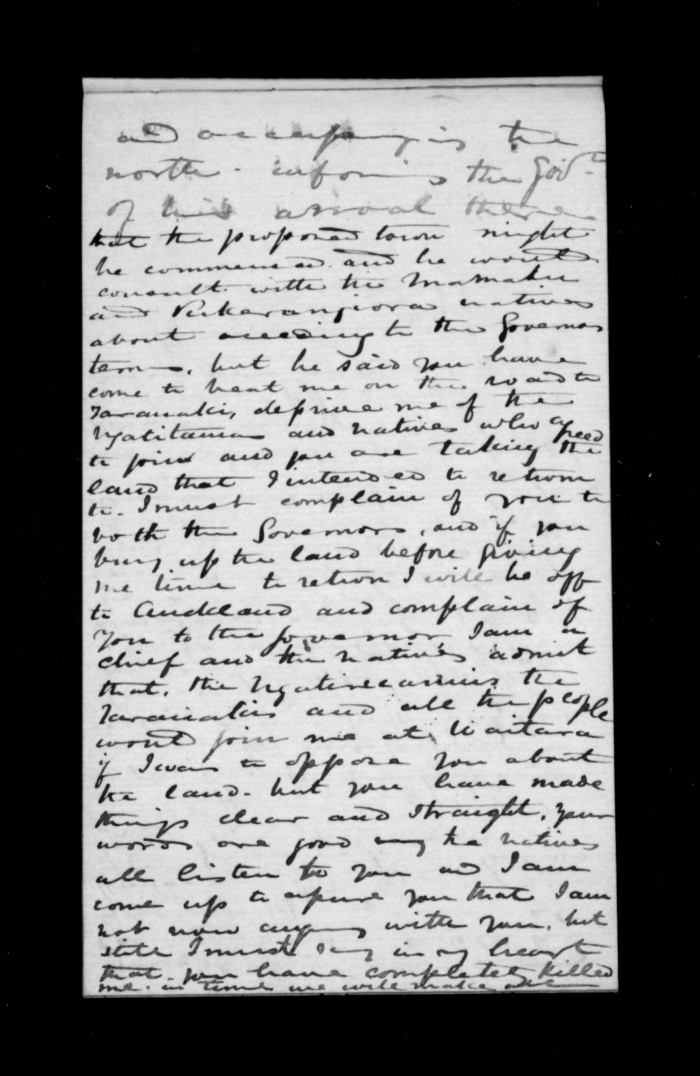 and accompanying the
north. informing the Gov.t
of his arrival there
that the proposed town might
be commenced and he would
consult with the Mamaku
and Pukerangiora natives
about acceding to the Governors
terms, but he said you have
come to beat me on the road to
Taranaki, deprive me of the
Ngatitamas and natives who agreed
to join and you are taking the
land that I intended to return
to. I must complain of you to
both the Governors, and if you
buy up the land before giving
me time to return I will be off
to Auckland and complain of
you to the Governor I am a
chief and the natives admit
that, the the
Taranakis and all the people
would join me at Waitara
if I was to oppose you about
the land. but you have made
things clear and straight, your
words are good the natives
all listen to you and I am
come up to you that I am
not now angry with you, but
still I must say in my heart
that you have completely killed
me. in time we will make